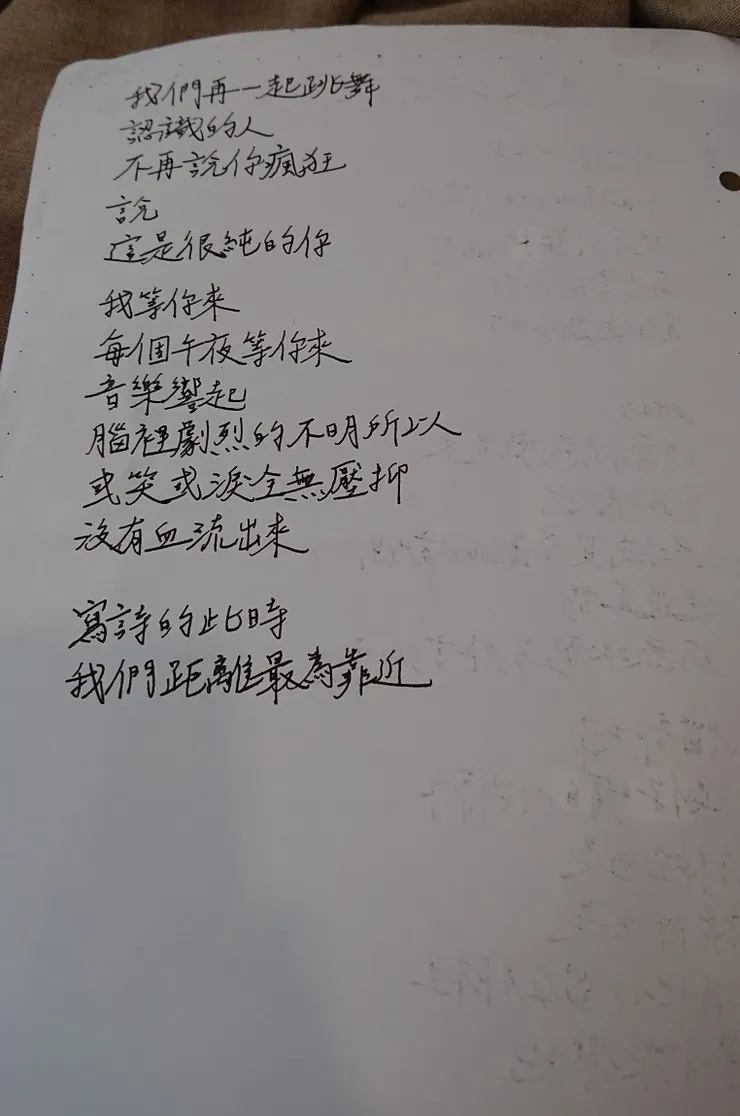 我們再一起跳舞
認識的人
不再說你瘋狂
說
這是很純的你
我等你來
每個午夜等你來
音樂響起
腦裡劇烈的不明所以人
或笑或淚全無壓抑
沒有血流出來
寫詩的此時
我們距離最為靠近